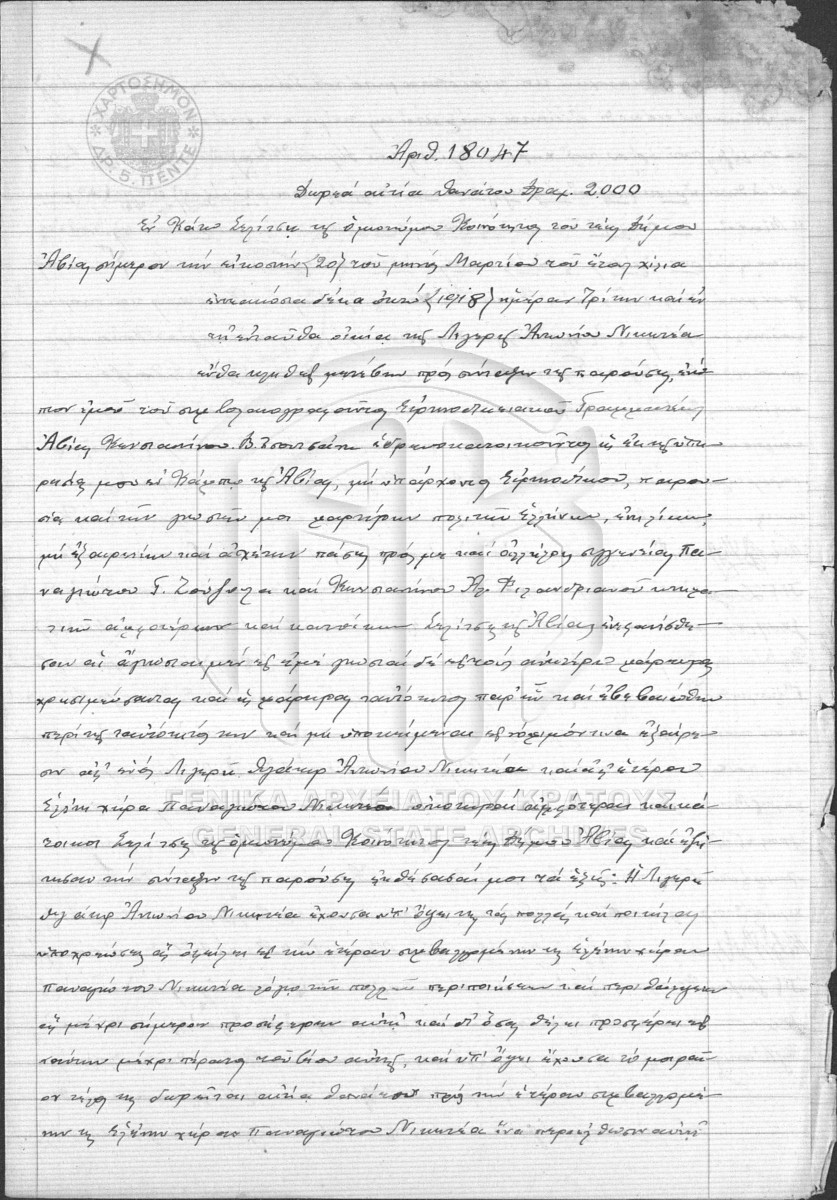 ΧΑΡΤΟΣΗΜΟΝ
ΔΡ. 5. ΠΕΝΤΕ
Ἀριθ. 18047
Δωρεά αἰτία θανάτου Δραχ. 2.000
Ἐν Κάτω Σελίτσῃ τῆς ὁμωνύμου Κοινότητος τοῦ τέως Δήμου
Ἀβίας σήμερον τήν εἰκοστήν (20) τοῦ μηνός Μαρτίου τοῦ ἔτους χίλια
ἐννεακόσια δέκα ὀκτώ (1918) ἡμέραν Τρίτην καί ἐν
τῇ ἐνταῦθα οἰκίᾳ τῆς Λιγερῆς Ἀντωνίου Νικητέα
ἔνθα κληθείς μετέβην πρός σύνταξιν τῆς παρούσης, ἐνώ-
πιον ἐμοῦ τοῦ συμβολαιογραφοῦντος Εἰρηνοδικειακοῦ Γραμματέως
Ἀβίας Κωνσταντίνου Β. ἑδρεύοντος κατοικοῦντος
μου ἐν Κάμπῳ τῆς Ἀβίας, μή ὑπάρχοντος Εἰρηνοδίκου, παρου-
σίᾳ καί τῶν γνωστῶν μοι μαρτύρων πολιτῶν Ἑλλήνων, ἐνηλίκων,
μή ἐξαιρετέων καί ἀσχέτων πάσης πρός με καί ἀλλήλους συγγενείας Πα-
ναγιώτου Γ. Ζούζουλα καί Κωνσταντίνου Ἀλ. Φιλανδριανοῦ κτημα-
τιῶν ἀμφοτέρων καί κατοίκων Σελίτσης τῆς Ἀβίας ἐνεφανίσθη-
σαν αἱ ἄγνωσται μέν εἰς ἐμέ γνωσταί δέ εἰς τούς ἀνωτέρω μάρτυρας
χρησιμεύσαντας καί ὡς μάρτυρας ταὐτότητος παρ' ὧν καί ἐβεβαιώθην
περί τῆς ταὐτότητός των καί μή ὑποκείμεναι εἰς νόμιμόν τινα ἐξαίρε-
σιν ἀφ' ἑνός Λιγερή Ἀντωνίου Νικητέα καί ἀφ' ἑτέρου
Ἑλένη χήρα Παναγιώτου Νικητέα οἰκοκυραί ἀμφότεραι καί κά-
τοικοι Σελίτσης τῆς ὁμωνύμου Κοινότητος τοῦ τέως Δήμου Ἀβίας καί ἐζή-
τησαν τήν σύνταξιν τῆς παρούσης ἐκθέσασαί μοι τά ἑξῆς: Ἡ Λιγερή
Ἀντωνίου Νικητέα ἔχουσα ὑπ' ὄψει της τάς πολλάς καί ποικίλας
ὑποχρεώσεις ἅς ὀφείλει εἰς τήν ἑτέραν συμβαλλομένην τήν Ἑλένην χήραν
Παναγιώτου Νικητέα λόγῳ τῶν πολλῶν περιποιήσεων καί περιθάλψεων
ἅς μέχρι σήμερον προσέφερεν αὐτῇ καί δι' ὅσας θέλει προσφέρει εἰς
ταύτην μέχρι πέρατος τοῦ βίου αὐτῆς, καί ὑπ' ὄψει ἔχουσα τό μοιραῖ-
ον τέλος της δωρεῖται αἰτίᾳ θανάτου πρός τήν ἑτέραν συμβαλλομέ-
νην τήν Ἑλένην χήραν Παναγιώτου Νικητέα ἵνα περιέλθωσιν αὐτῇ
ΓΕΝΙΚΑ ΑΡΧΕΙΑ ΤΟΥ ΚΡΑΤΟΥΣ
GENERAL STATE ARCHIVES